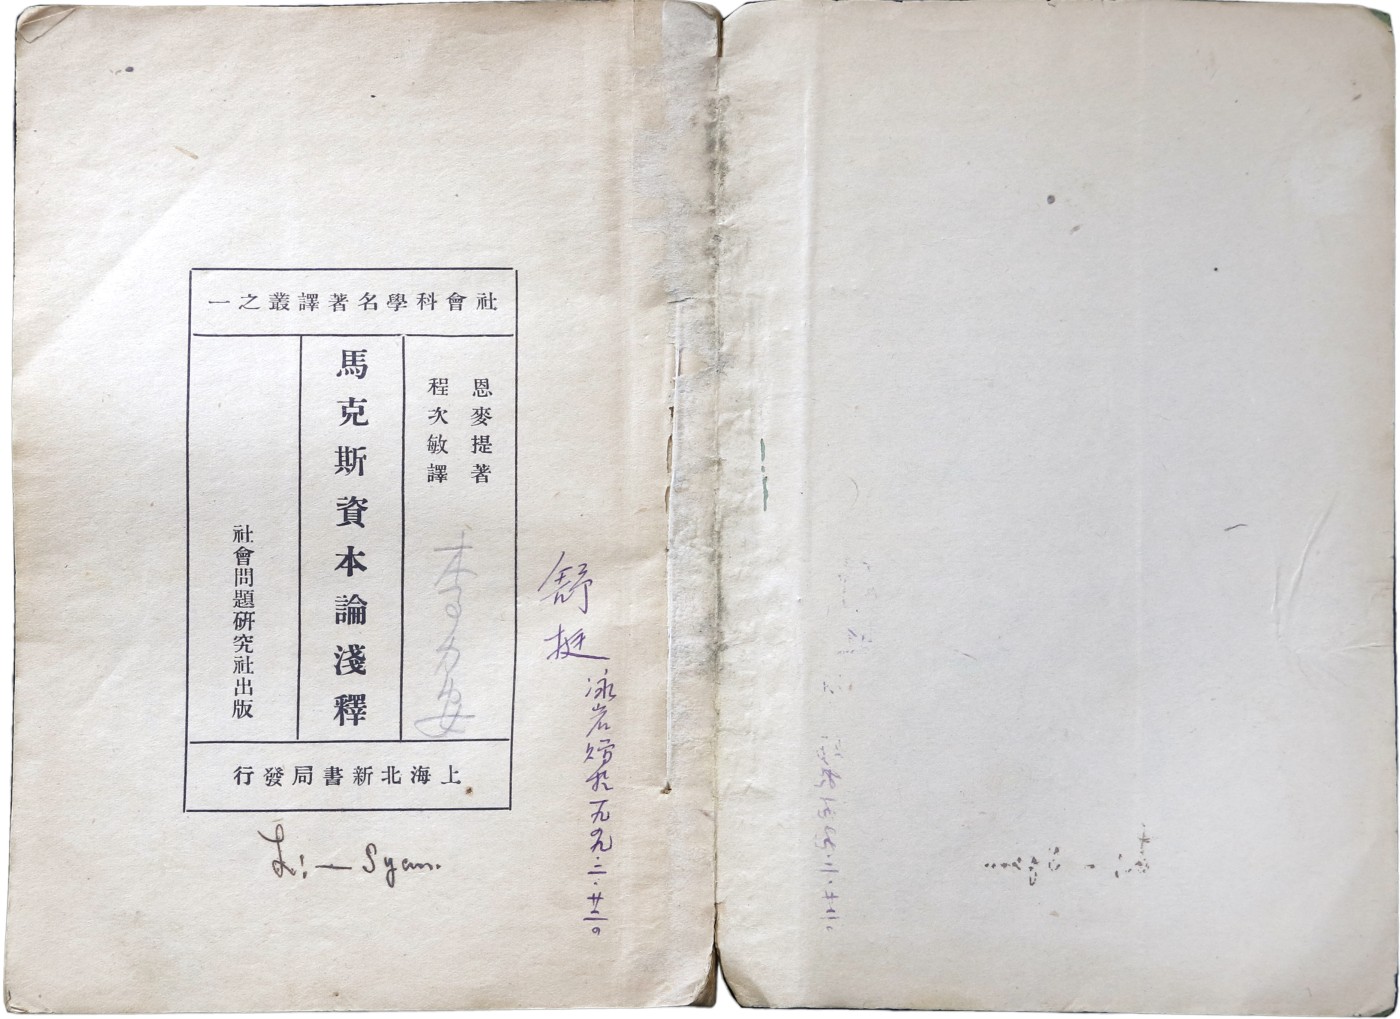 社會科學名著譯叢之一
恩麥提著
程次敏譯
馬克斯資本論淺釋
社會問題研究社出版
上海北新書局發行
舒挺
泳岩贈於一九九.二.廿二。
Li — Syan.